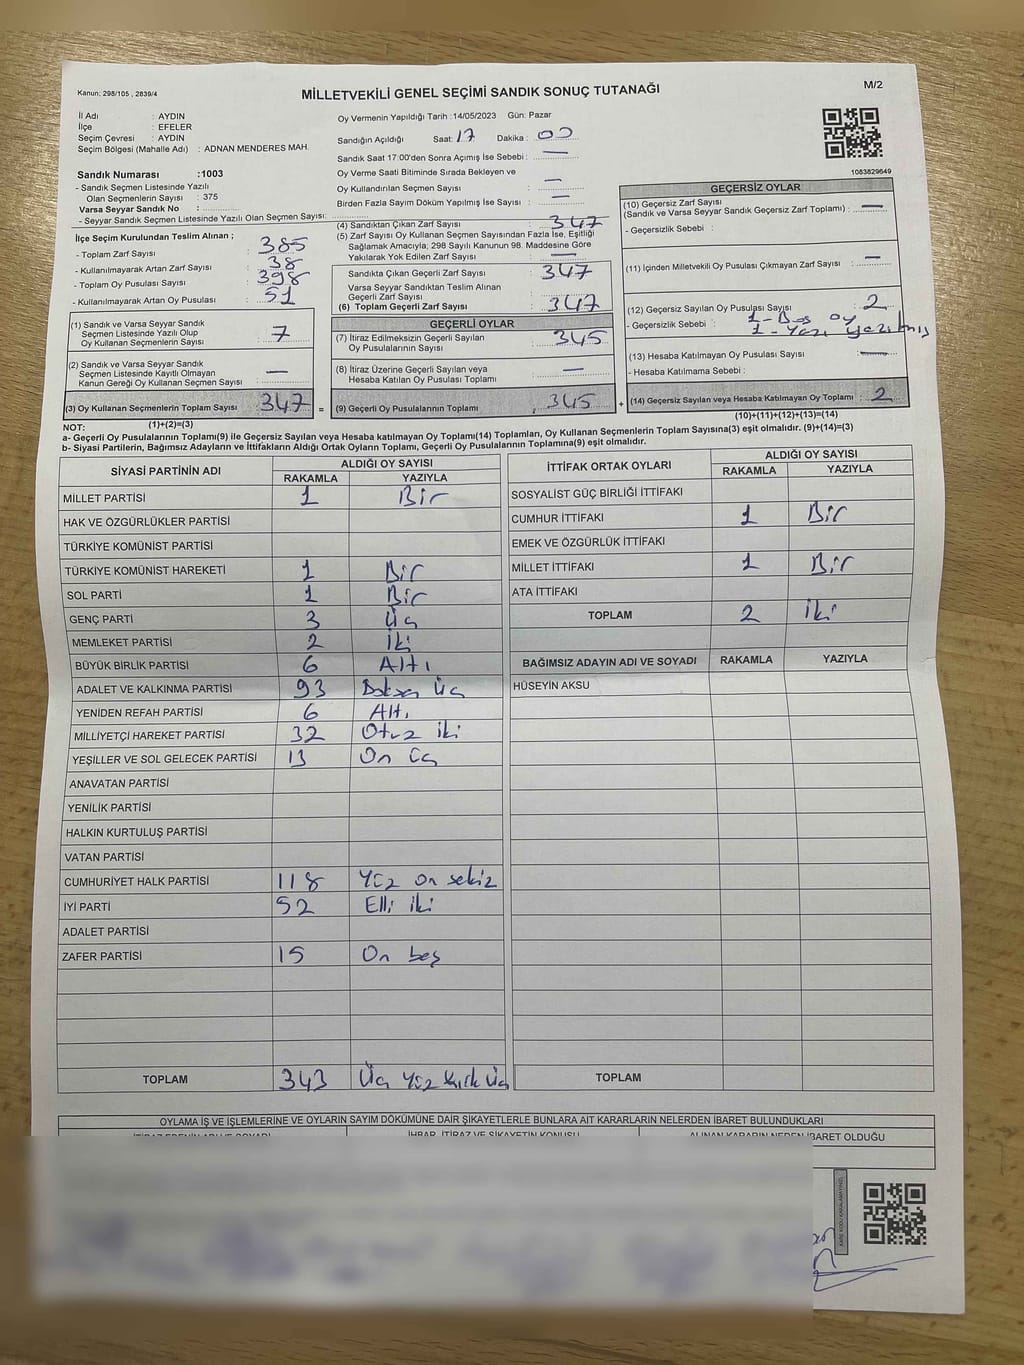 Kanun: 298/105 , 2839/4
MİLLETVEKİLİ GENEL SEÇİMİ SANDIK SONUÇ TUTANAĞI
M/2
İl Adı : AYDIN
İlçe : EFELER
Seçim Çevresi : AYDIN
Seçim Bölgesi (Mahalle Adı) : ADNAN MENDERES MAH.
Sandık Numarası :1003
- Sandık Seçmen Listesinde Yazılı
Olan Seçmenlerin Sayısı : 375
Varsa Seyyar Sandık No :
- Seyyar Sandık Seçmen Listesinde Yazılı Olan Seçmen Sayısı:
Oy Vermenin Yapıldığı Tarih :14/05/2023 Gün: Pazar
Sandığın Açıldığı Saat: 17 Dakika : 00
Sandık Saat 17:00'den Sonra Açımış İse Sebebi : —
Oy Verme Saati Bitiminde Sırada Bekleyen ve
Oy Kullandırılan Seçmen Sayısı : —
Birden Fazla Sayım Döküm Yapılmış İse Sayısı : —
1083829649
İlçe Seçim Kurulundan Teslim Alınan ;
- Toplam Zarf Sayısı : 385
- Kullanılmayarak Artan Zarf Sayısı : 38
- Toplam Oy Pusulası Sayısı : 398
- Kullanılmayarak Artan Oy Pusulası : 51
(1) Sandık ve Varsa Seyyar Sandık
Seçmen Listesinde Yazılı Olup
Oy Kullanan Seçmenlerin Sayısı : 7
(2) Sandık ve Varsa Seyyar Sandık
Seçmen Listesinde Kayıtlı Olmayan
Kanun Gereği Oy Kullanan Seçmen Sayısı : —
(3) Oy Kullanan Seçmenlerin Toplam Sayısı : 347
(1)+(2)=(3)
(4) Sandıktan Çıkan Zarf Sayısı : 347
(5) Zarf Sayısı Oy Kullanan Seçmen Sayısından Fazla İse, Eşitliği
Sağlamak Amacıyla; 298 Sayılı Kanunun 98. Maddesine Göre
Yakılarak Yok Edilen Zarf Sayısı : —
Sandıkta Çıkan Geçerli Zarf Sayısı : 347
Varsa Seyyar Sandıktan Teslim Alınan
Geçerli Zarf Sayısı :
(6) Toplam Geçerli Zarf Sayısı : 347
GEÇERLİ OYLAR
(7) İtiraz Edilmeksizin Geçerli Sayılan
Oy Pusulalarının Sayısı : 345
(8) İtiraz Üzerine Geçerli Sayılan veya
Hesaba Katılan Oy Pusulası Toplamı : —
= (9) Geçerli Oy Pusulalarının Toplamı : 345
GEÇERSİZ OYLAR
(10) Geçersiz Zarf Sayısı
(Sandık ve Varsa Seyyar Sandık Geçersiz Zarf Toplamı) : —
- Geçersizlik Sebebi :
(11) İçinden Milletvekili Oy Pusulası Çıkmayan Zarf Sayısı : —
(12) Geçersiz Sayılan Oy Pusulası Sayısı : 2
- Geçersizlik Sebebi : 1- Boş oy
1- Yazı yazılmış
(13) Hesaba Katılmayan Oy Pusulası Sayısı : —
- Hesaba Katılmama Sebebi :
+ (14) Geçersiz Sayılan veya Hesaba Katılmayan Oy Toplamı : 2
(10)+(11)+(12)+(13)=(14)
NOT:
a- Geçerli Oy Pusulalarının Toplamı(9) ile Geçersiz Sayılan veya Hesaba katılmayan Oy Toplamı(14) Toplamları, Oy Kullanan Seçmenlerin Toplam Sayısına(3) eşit olmalıdır. (9)+(14)=(3)
b- Siyasi Partilerin, Bağımsız Adayların ve İttifakların Aldığı Ortak Oyların Toplamı, Geçerli Oy Pusulalarının Toplamına(9) eşit olmalıdır.
SİYASİ PARTİNİN ADI ALDIĞI OY SAYISI
RAKAMLA YAZIYLA
MİLLET PARTİSİ 1 Bir
HAK VE ÖZGÜRLÜKLER PARTİSİ
TÜRKİYE KOMÜNİST PARTİSİ
TÜRKİYE KOMÜNİST HAREKETİ 1 Bir
SOL PARTİ 1 Bir
GENÇ PARTİ 3 Üç
MEMLEKET PARTİSİ 2 İki
BÜYÜK BİRLİK PARTİSİ 6 Altı
ADALET VE KALKINMA PARTİSİ 93 Doksan Üç
YENİDEN REFAH PARTİSİ 6 Altı
MİLLİYETÇİ HAREKET PARTİSİ 32 Otuz iki
YEŞİLLER VE SOL GELECEK PARTİSİ 13 On üç
ANAVATAN PARTİSİ
YENİLİK PARTİSİ
HALKIN KURTULUŞ PARTİSİ
VATAN PARTİSİ
CUMHURİYET HALK PARTİSİ 118 Yüz on sekiz
İYİ PARTİ 52 Elli iki
ADALET PARTİSİ
ZAFER PARTİSİ 15 On beş
TOPLAM 343 Üç Yüz Kırk Üç
İTTİFAK ORTAK OYLARI ALDIĞI OY SAYISI
RAKAMLA YAZIYLA
SOSYALİST GÜÇ BİRLİĞİ İTTİFAKI
CUMHUR İTTİFAKI 1 Bir
EMEK VE ÖZGÜRLÜK İTTİFAKI
MİLLET İTTİFAKI 1 Bir
ATA İTTİFAKI
TOPLAM 2 İki
BAĞIMSIZ ADAYIN ADI VE SOYADI RAKAMLA YAZIYLA
HÜSEYİN AKSU
TOPLAM
OYLAMA İŞ VE İŞLEMLERİNE VE OYLARIN SAYIM DÖKÜMÜNE DAİR ŞİKAYETLERLE BUNLARA AİT KARARLARIN NELERDEN İBARET BULUNDUKLARI
İHBAR, İTİRAZ VE ŞİKAYETİN KONUSU ALINAN KARARIN NEDEN İBARET OLDUĞU